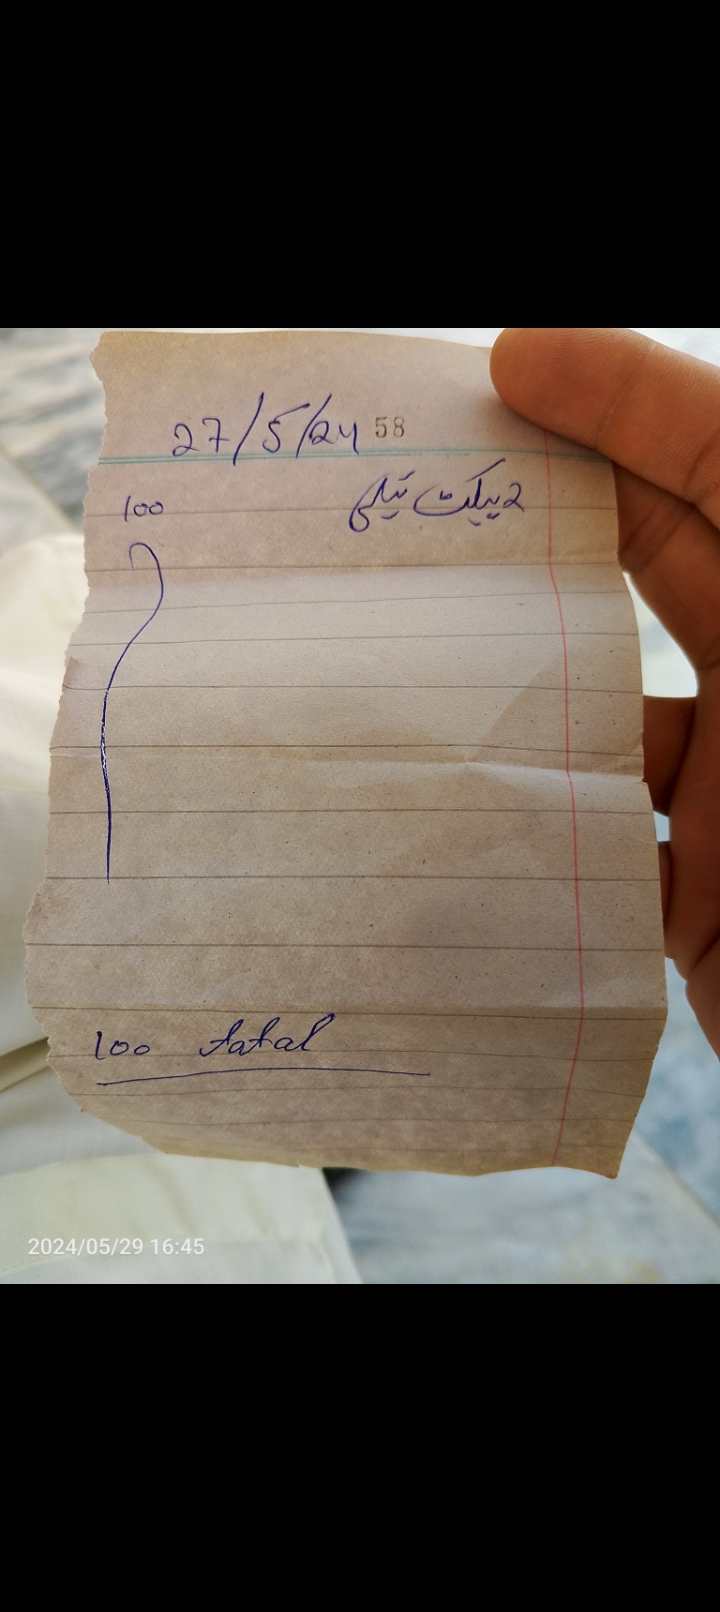 27/5/24 58
100 2 پیکٹ تیلی
100 total
2024/05/29 16:45